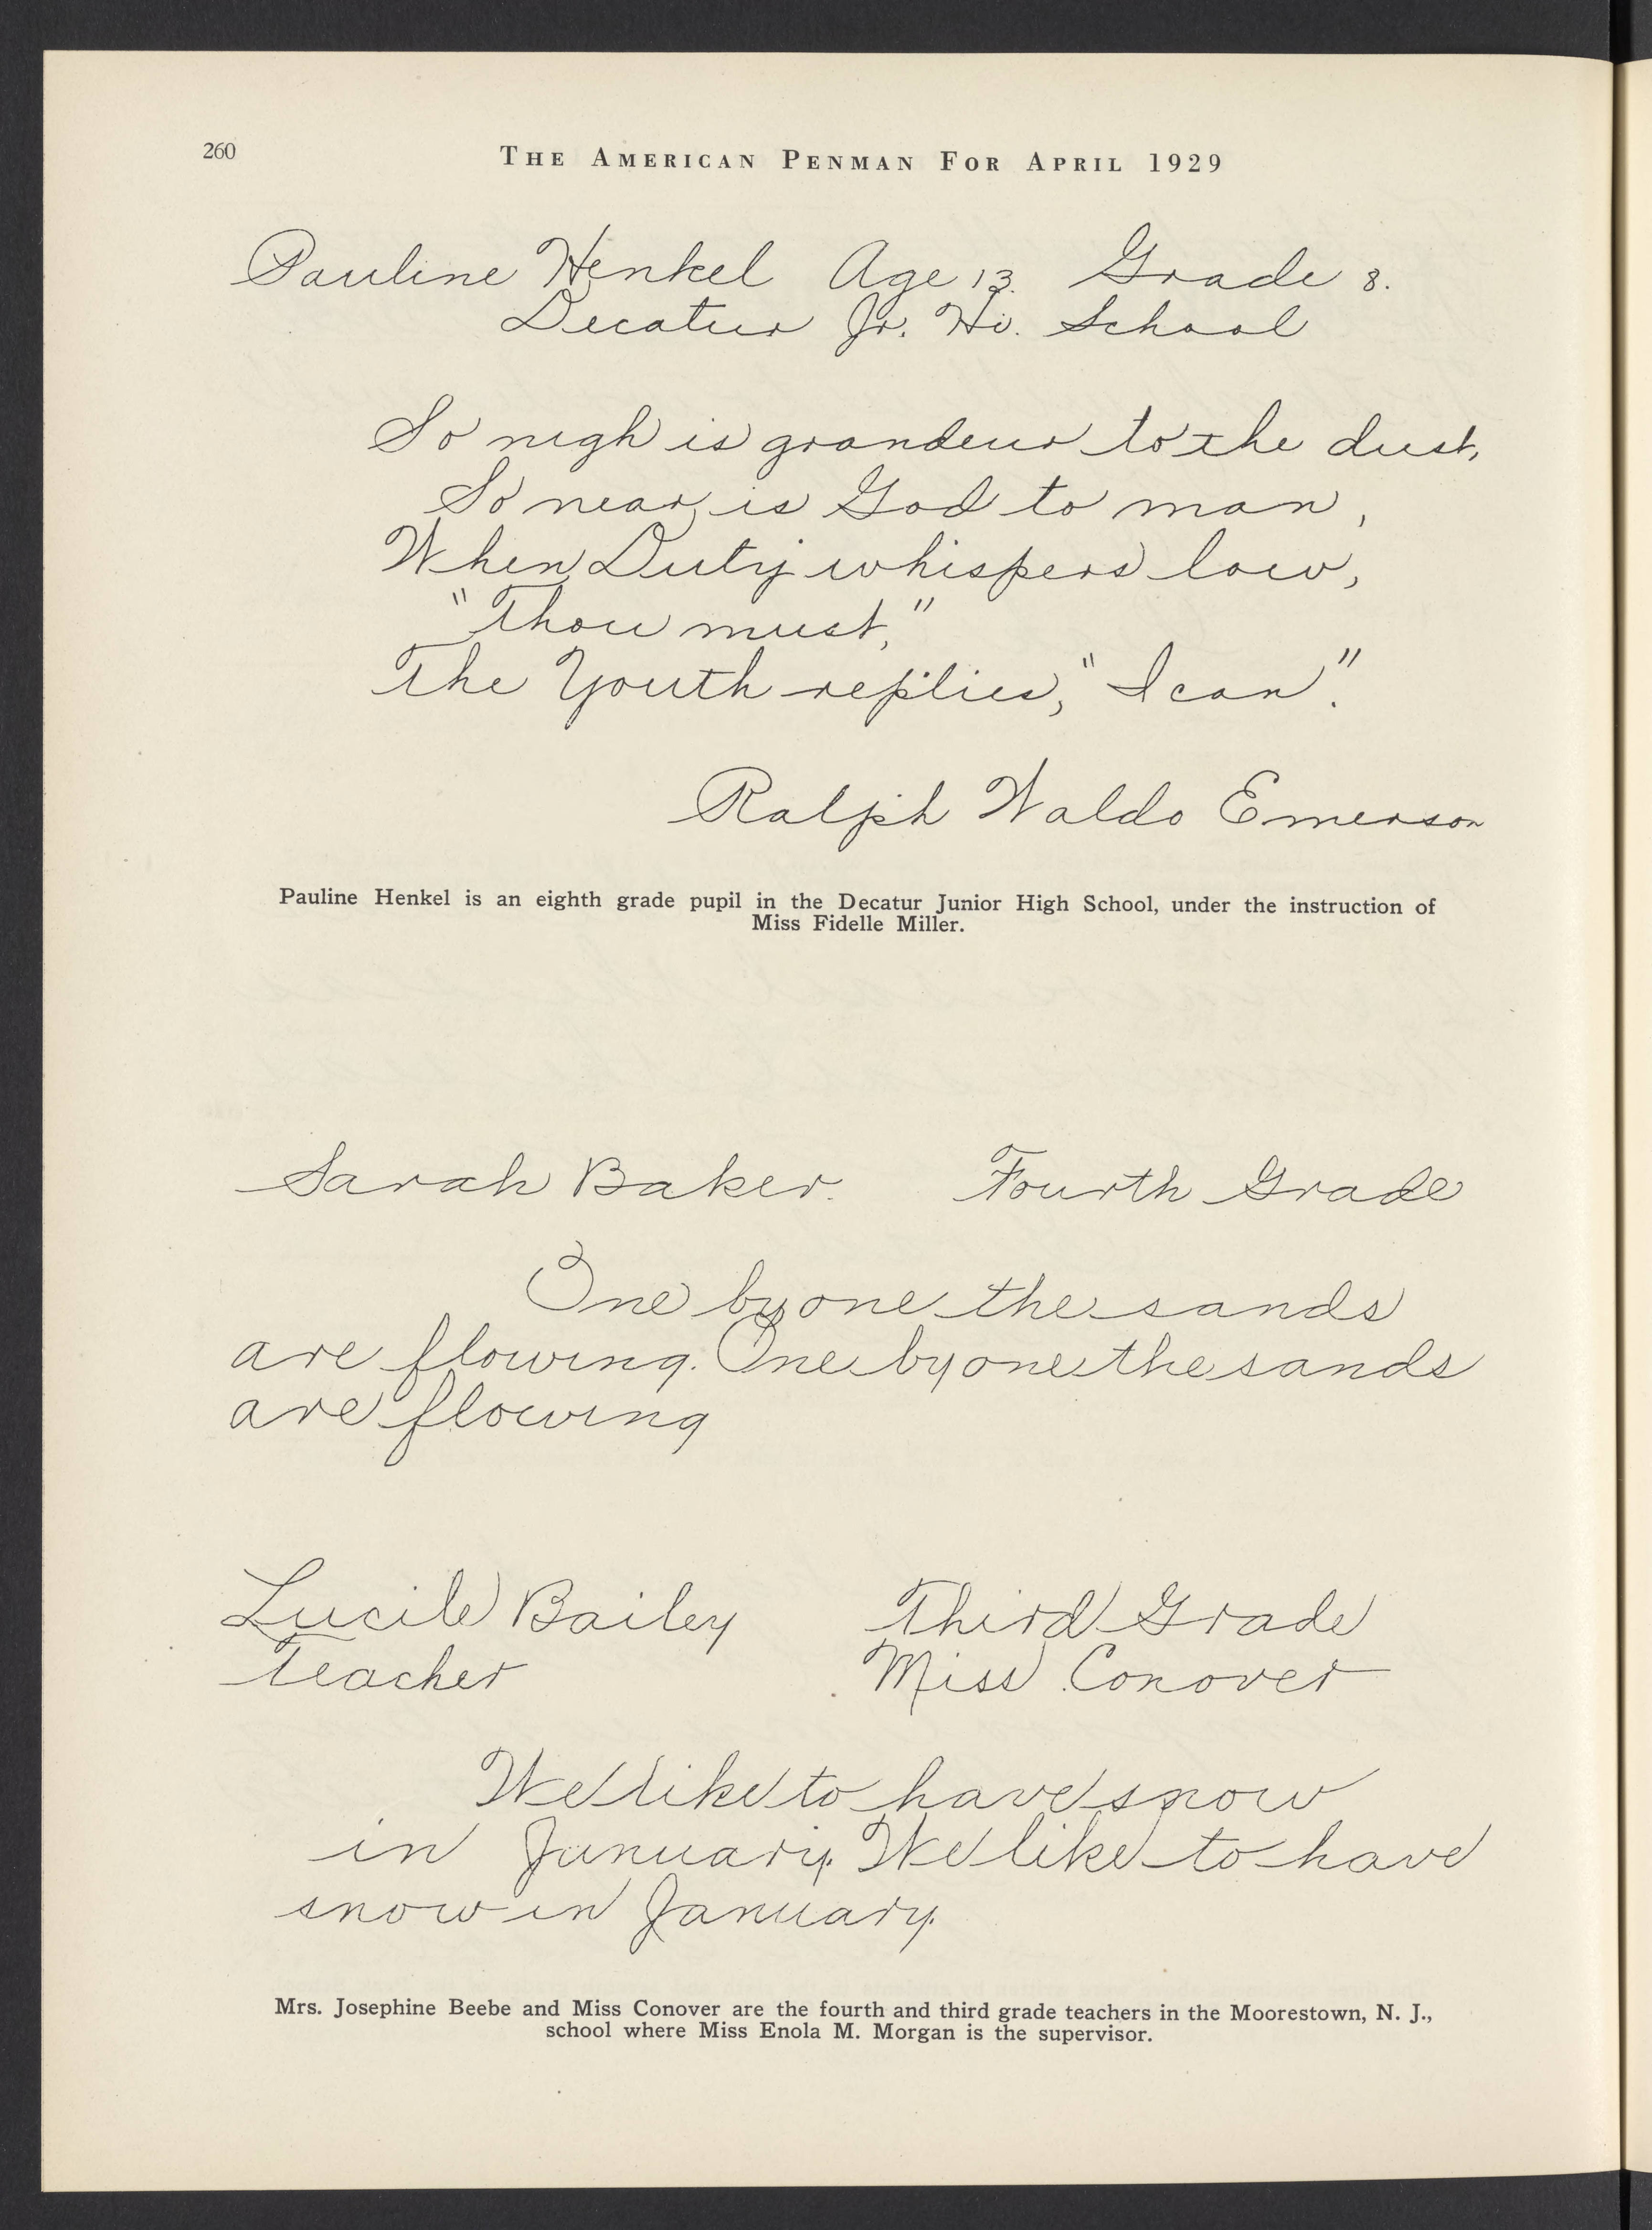 260
THE AMERICAN PENMAN FOR APRIL 1929
Pauline Henkel Age 13. Grade 8.
Decatur Jr. Hi. School
So nigh is grandeur to the dust,
So near is God to man,
When Duty whispers low,
"Thou must,"
The Youth replies, "I can".
Ralph Waldo Emerson
Pauline Henkel is an eighth grade pupil in the Decatur Junior High School, under the instruction of
Miss Fidelle Miller.
Sarah Baker. Fourth Grade
One by one the sands
are flowing. One by one the sands
are flowing
Lucile Bailey Third Grade
Teacher Miss Conover
We like to have snow
in January. We like to have
snow in January.
Mrs. Josephine Beebe and Miss Conover are the fourth and third grade teachers in the Moorestown, N. J.,
school where Miss Enola M. Morgan is the supervisor.